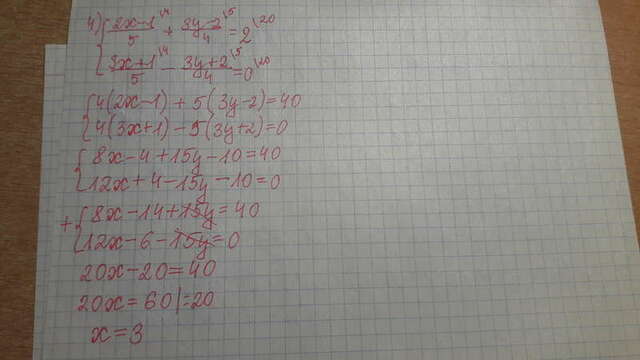 4) { (2x-1)/5 \4 + (3y-2)/4 \5 = 2 \20
{ (3x+1)/5 \4 - (3y+2)/4 \5 = 0 \20
{ 4(2x-1) + 5(3y-2)=40
4(3x+1)-5(3y+2)=0
{ 8x-4+15y-10=40
12x+4-15y-10=0
+{ 8x-14+15y=40
12x-6-15y=0
20x-20=40
20x=60 |:20
x=3